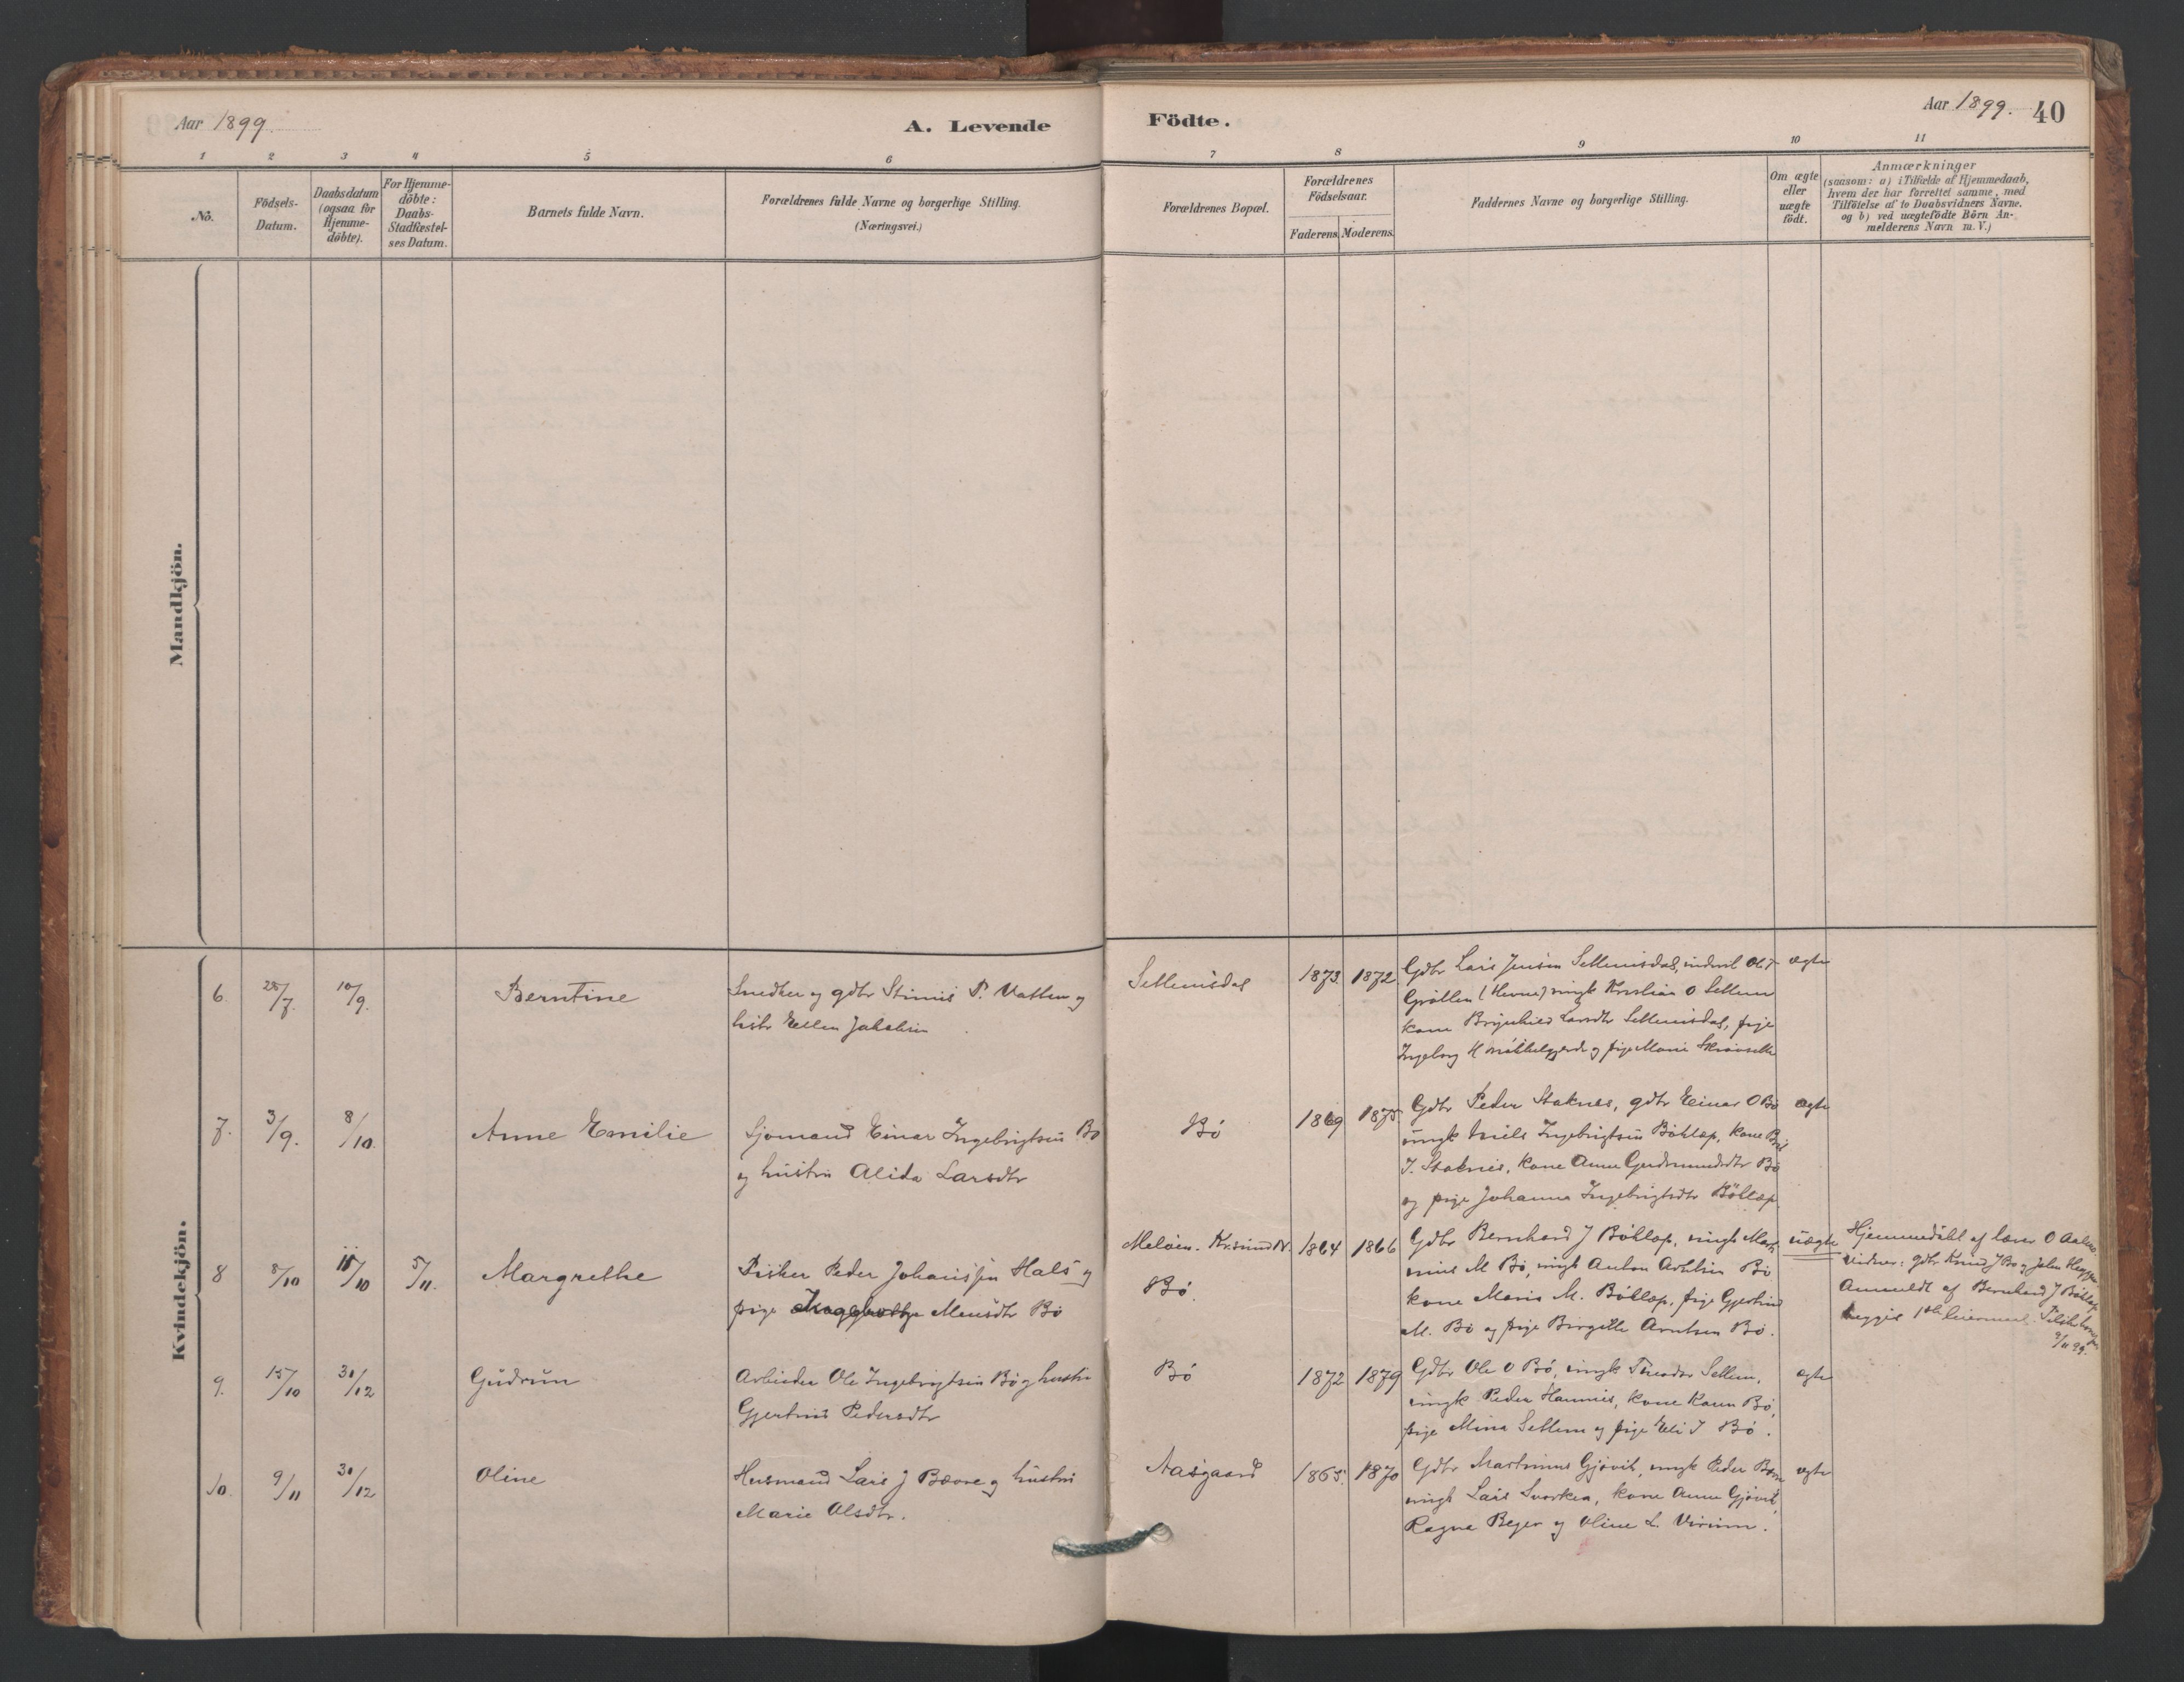 Aar 1899.
A. Levende
Födte.
Aar 1899.
40
1 2 3 4 5 6 7 8 9 10 11
No.
Födsels-
Datum.
Daabsdatum
(ogsaa for
Hjemme-
döbte).
For Hjemme-
döbte:
Daabs-
Stadfæstel-
ses Datum.
Barnets fulde Navn.
Forældrenes fulde Navne og borgerlige Stilling.
(Næringsvei.)
Forældrenes Bopæl.
Forældrenes
Födselsaar.
Faderens. Moderens.
Faddernes Navne og borgerlige Stilling.
Om ægte
eller
uægte
födt.
Anmærkninger
(saasom: a) i Tilfælde af Hjemmedaab,
hvem der har forrettet samme, med
Tilföielse af to Daabsvidners Navne.
og b) ved uægtefödte Börn An-
melderens Navn m.V.)
Mandkjön.
Kvindekjön.
6. 25/7. 10/9. Berntine
Snedker og gdbr P. Vatten og
hstr Ellen
Settemsdal
1873. 1872
Gdbr Lars Jensen Settemsdal,
(Hevne) ungk Kristian O Settem
kone Larsdtr Settemsdal, pige
Ingeborg og pige Marie
ægte
7. 3/9. 8/10. Anne Emilie
Sjømand Einar Ingebrigtsen Bø
og hustru Alida Larsdtr
Bø
1869 1875
Gdbr Peder Stoknes, gdbr Einar O Bø
ungk Niels Ingebrigtsen Bøklep, kone
J. Stoknes, kone Anne Gudmundsdtr Bø
og pige Johanna Ingebrigtsdtr Bøklep
ægte
8 8/10 15/10 5/11. Margrethe
Fisker Peder Johanssen Hals og
pige Monsdtr Bø
Meløen. Kr.sund N.
Bø.
1864 1866
Gdbr Bernhard J Bøklep, ungk
M Bø, ungk Anton Arntsen Bø
kone Maria M. Bøklep, pige Gjertrud
M. Bø og pige Birgitte Arntsen Bø.
uægte
Hjemmedøbt af lærer O
vidner: gdbr Knud J Bø og John
Anmeldt af Bernhard J Bøklep
begges 1ste leiermaal.
9/11 99.
9. 15/10 31/12 Gudrun
Arbeider Ole Ingebrigtsen Bø og hustru
Gjertrud Pedersdtr
Bø
1872 1879
Gdbr Ole O Bø, ungk Theodor Settem,
ungk Peder Hamnes, kone Karen Bø,
pige Mina Settem og pige Eli J Bø.
ægte
10. 9/11 31/12 Oline
Husmand Lars J Bævre og hustru
Marie Olsdtr.
Aasgaard
1865. 1870
Gdbr Martinus Gjøvik, ungk Peder
ungk Lars Svorken, kone Anne Gjøvik,
Ragna og Oline L.
ægte